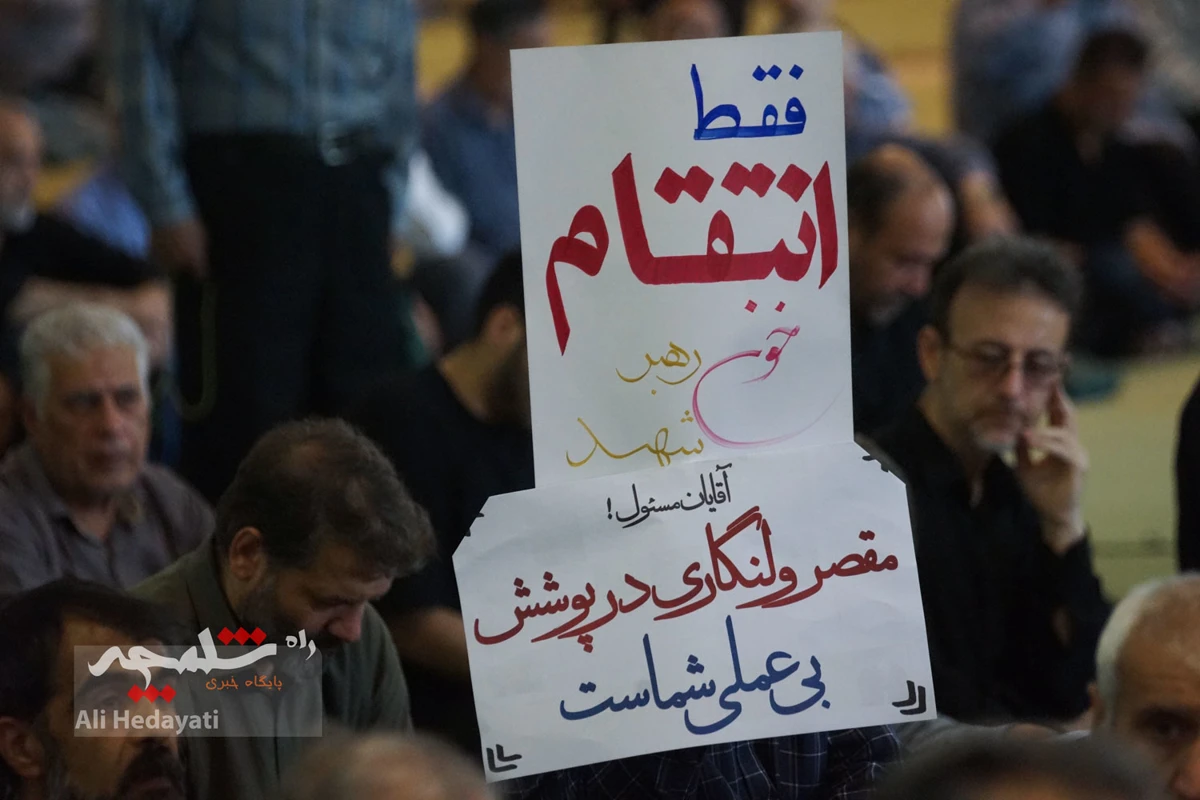 فقط
انتقام
خون
رهبر
شهید
آقایان مسئول!
مقصر ولنگاری در پوشش
بی عملی شماست
راه شلمچه
پایگاه خبری
Ali Hedayati